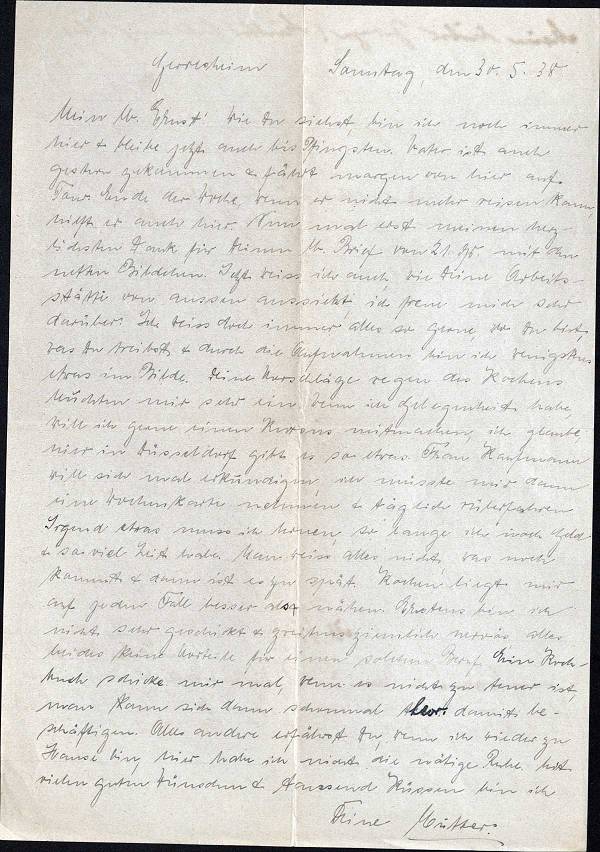 Gerresheim Samstag, den 30. 5. 38
Mein lb. Ernst! Wie Du siehst, bin ich noch immer
hier & bleibe jetzt auch bis Pfingsten. Vater ist auch
gestern gekommen & fährt morgen von hier auf
Tour. Ende der Woche, wenn er nicht mehr reisen kann,
hilft er auch hier. Nun mal erst meinen herz-
lichsten Dank für Deinen lb. Brief von 21. ds. mit den
netten Bildchen. Jetzt weiss ich auch, wie Deine Arbeits-
stätte von aussen aussieht, ich freue mich sehr
darüber. Ich weiss doch immer alles so gerne, wo Du bist,
was Du treibst & durch die Aufnahmen bin ich wenigstens
etwas im Bilde. Deine Vorschläge wegen des Kochens
leuchten mir sehr ein, wenn ich Gelegenheit habe,
will ich gerne einen Kursus mitmachen, ich glaube,
hier in Düsseldorf gibt es so etwas. Frau Kaufmann
will sich mal erkundigen, wir müsste mir dann
eine Wochenkarte nehmen & täglich rüberfahren
Irgend etwas muss ich lernen so lange ich noch Geld
& so viel Zeit habe. Man weiss alles nicht, was noch
kommt & dann ist es zu spät. Kochen liegt mir
auf jeden Fall besser als nähen. Erstens bin ich
nicht sehr geschickt & zweitens ziemlich nervös, alles
beides keine Vorteile für einen solchen Beruf. Ein Koch-
buch schicke mir mal, wenn es nicht zu teuer ist,
man kann sich dann schonmal theor. damit be-
schäftigen. Alles andere erfährst Du, wenn ich wieder zu
Hause bin, hier habe ich nicht die nötige Ruhe. Mit
vielen guten Wünschen & tausend Küssen bin ich
Deine Mutter.